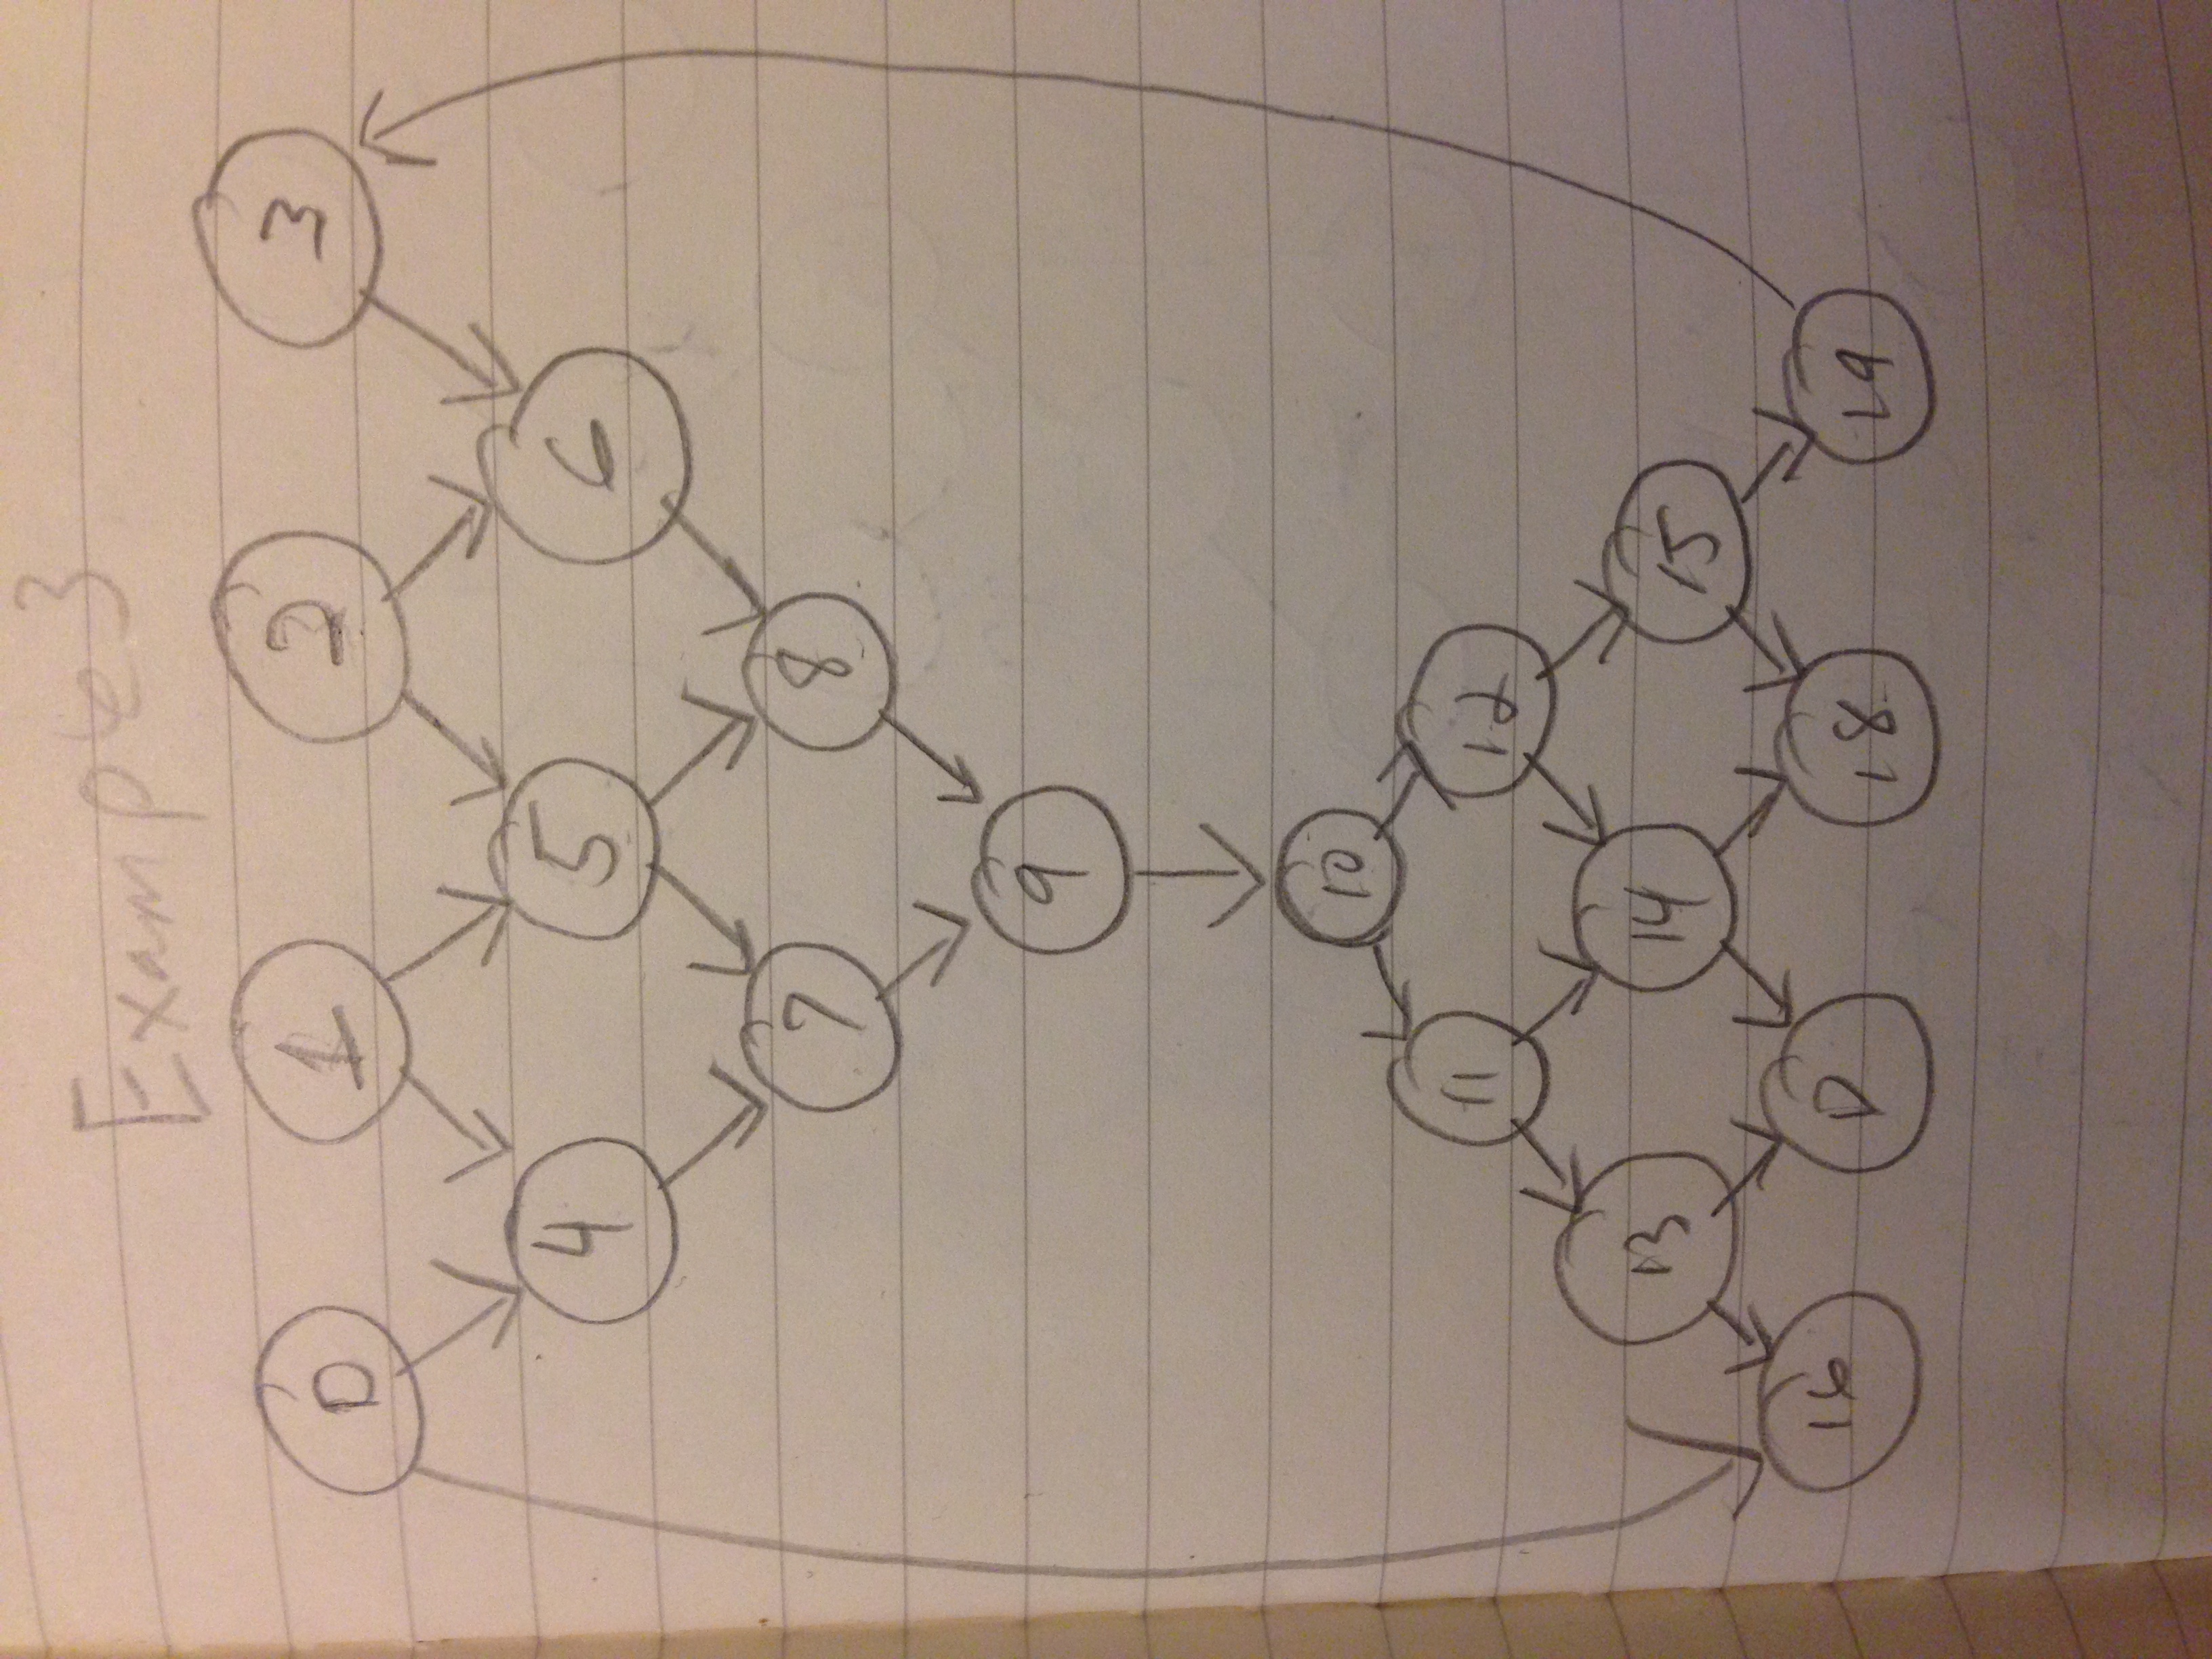 Example 3
0 1 2 3
4 5 6
7 8
9
10
11 12
13 14 15
16 17 18 19